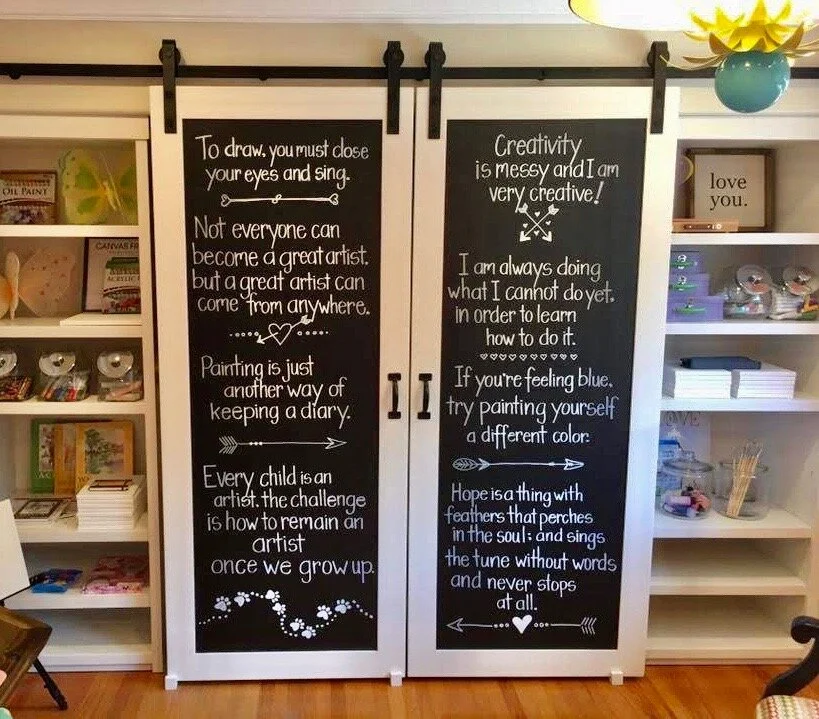 To draw, you must close
your eyes and sing.
Not everyone can
become a great artist,
but a great artist can
come from anywhere.
Painting is just
another way of
keeping a diary.
Every child is an
artist, the challenge
is how to remain an
artist
once we grow up.
Creativity
is messy and I am
very creative!
I am always doing
what I cannot do yet,
in order to learn
how to do it.
If you're feeling blue,
try painting yourself
a different color.
Hope is a thing with
feathers that perches
in the soul; and sings
the tune without words
and never stops
at all.
OIL PAINT
love
you.